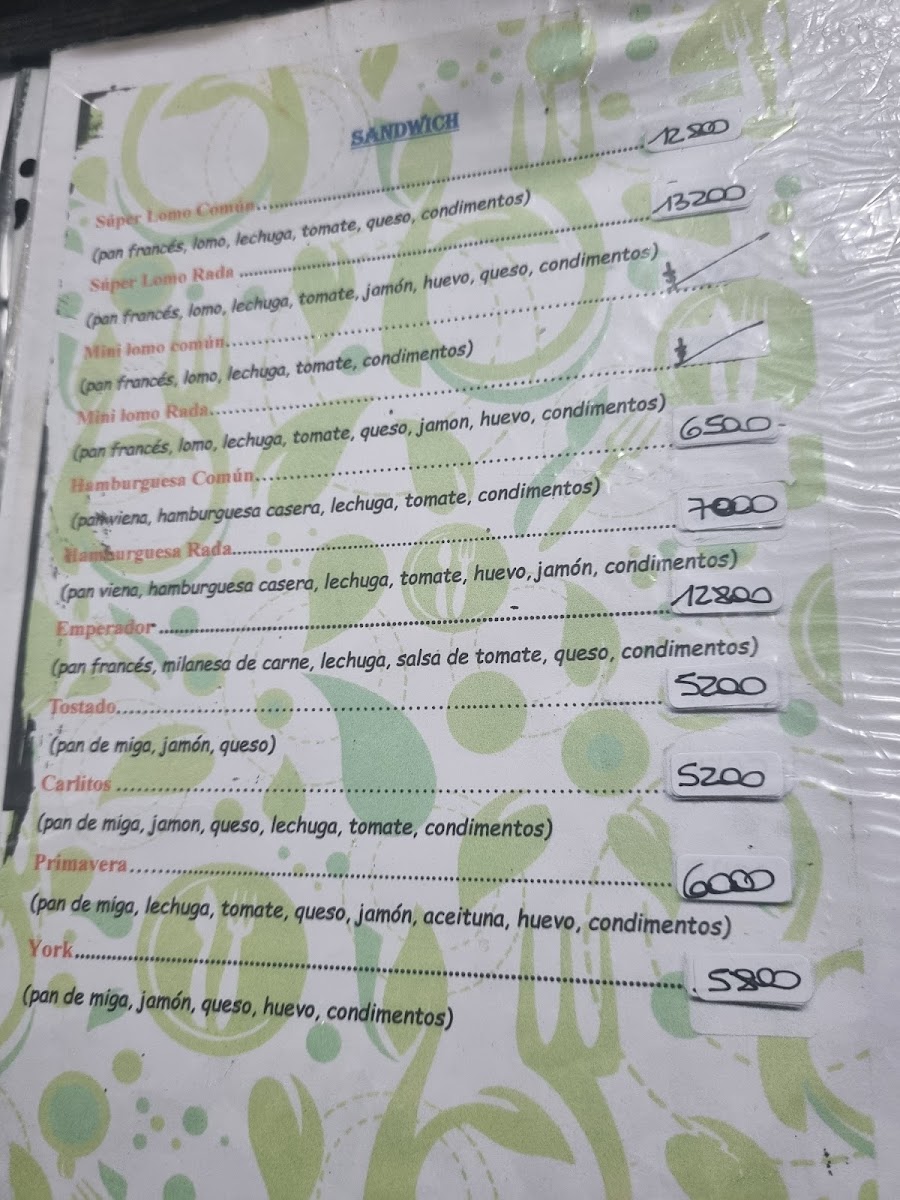 SANDWICH
Súper Lomo Común.......... 12800
(pan francés, lomo, lechuga, tomate, queso, condimentos)
Súper Lomo Rada .......... 13200
(pan francés, lomo, lechuga, tomate, jamón, huevo, queso, condimentos)
Mini lomo común.......... $
(pan francés, lomo, lechuga, tomate, condimentos)
Mini lomo Rada.......... $
(pan francés, lomo, lechuga, tomate, queso, jamon, huevo, condimentos)
Hamburguesa Común.......... 6500-
(pan viena, hamburguesa casera, lechuga, tomate, condimentos)
Hamburguesa Rada.......... 7000
(pan viena, hamburguesa casera, lechuga, tomate, huevo, jamón, condimentos)
Emperador .......... 12800
(pan francés, milanesa de carne, lechuga, salsa de tomate, queso, condimentos)
Tostado.......... 5200
(pan de miga, jamón, queso)
Carlitos .......... 5200
(pan de miga, jamon, queso, lechuga, tomate, condimentos)
Primavera.......... 6000
(pan de miga, lechuga, tomate, queso, jamón, aceituna, huevo, condimentos)
York.......... 5800
(pan de miga, jamón, queso, huevo, condimentos)